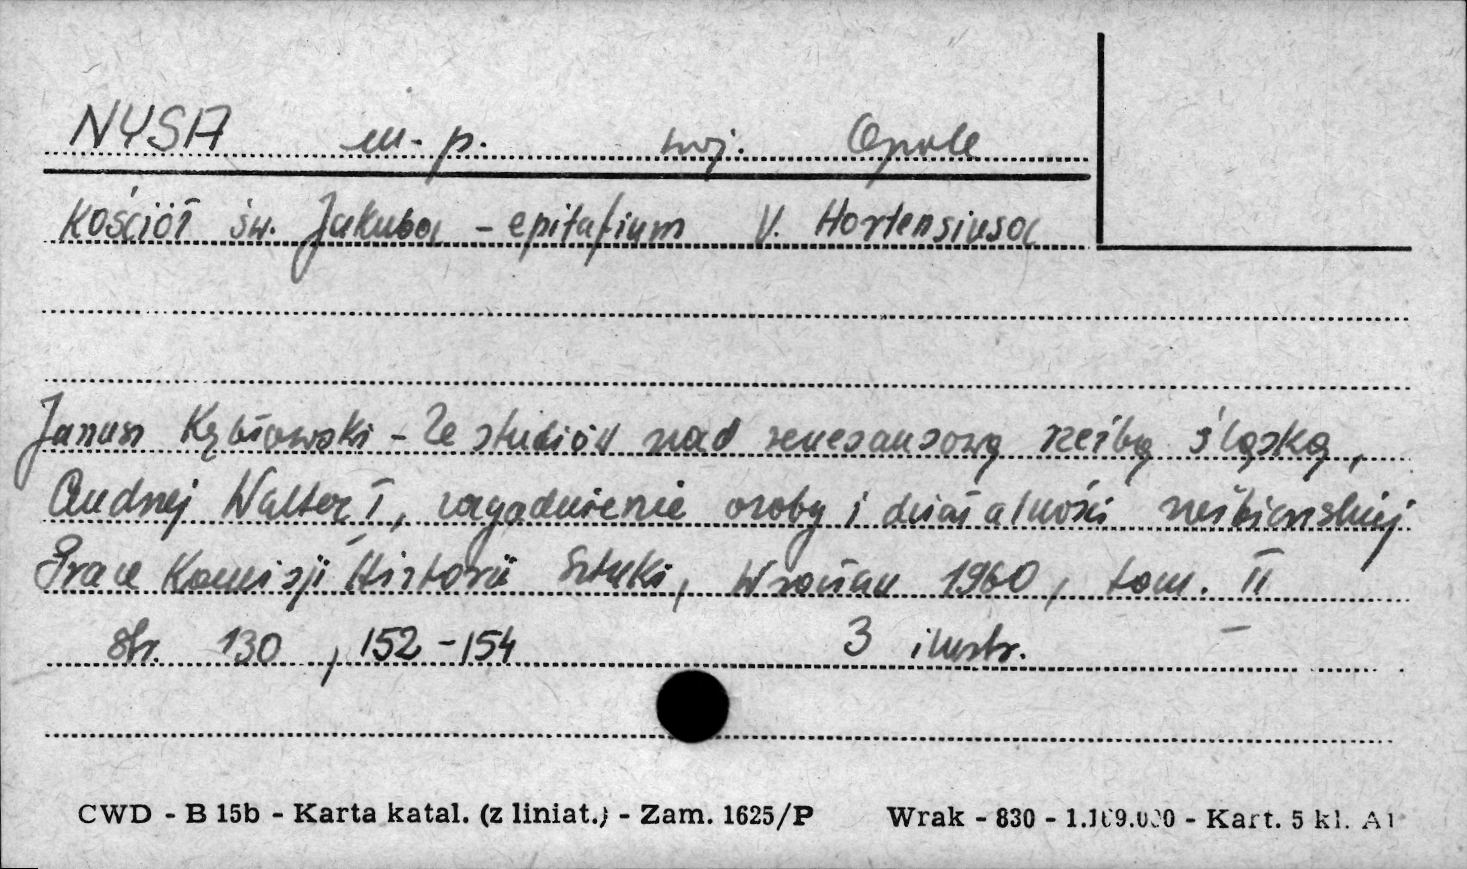 NYSA m-p. woj. Opole
Kościół św. Jakuba - epitafium V. Hortensiusa
Janusz Kębłowski - Ze studiów nad renesansową rzeźbą śląską,
Andrzej Walter I, zagadnienie osoby i działalności rzeźbiarskiej
Prace Komisji Historii Sztuki, Wrocław 1960, tom. II
str. 130, 152-154 3 ilustr.
CWD - B 15b - Karta katal. (z liniat.) - Zam. 1625/P Wrak - 830 - 1.109.000 - Kart. 5 kl. A1